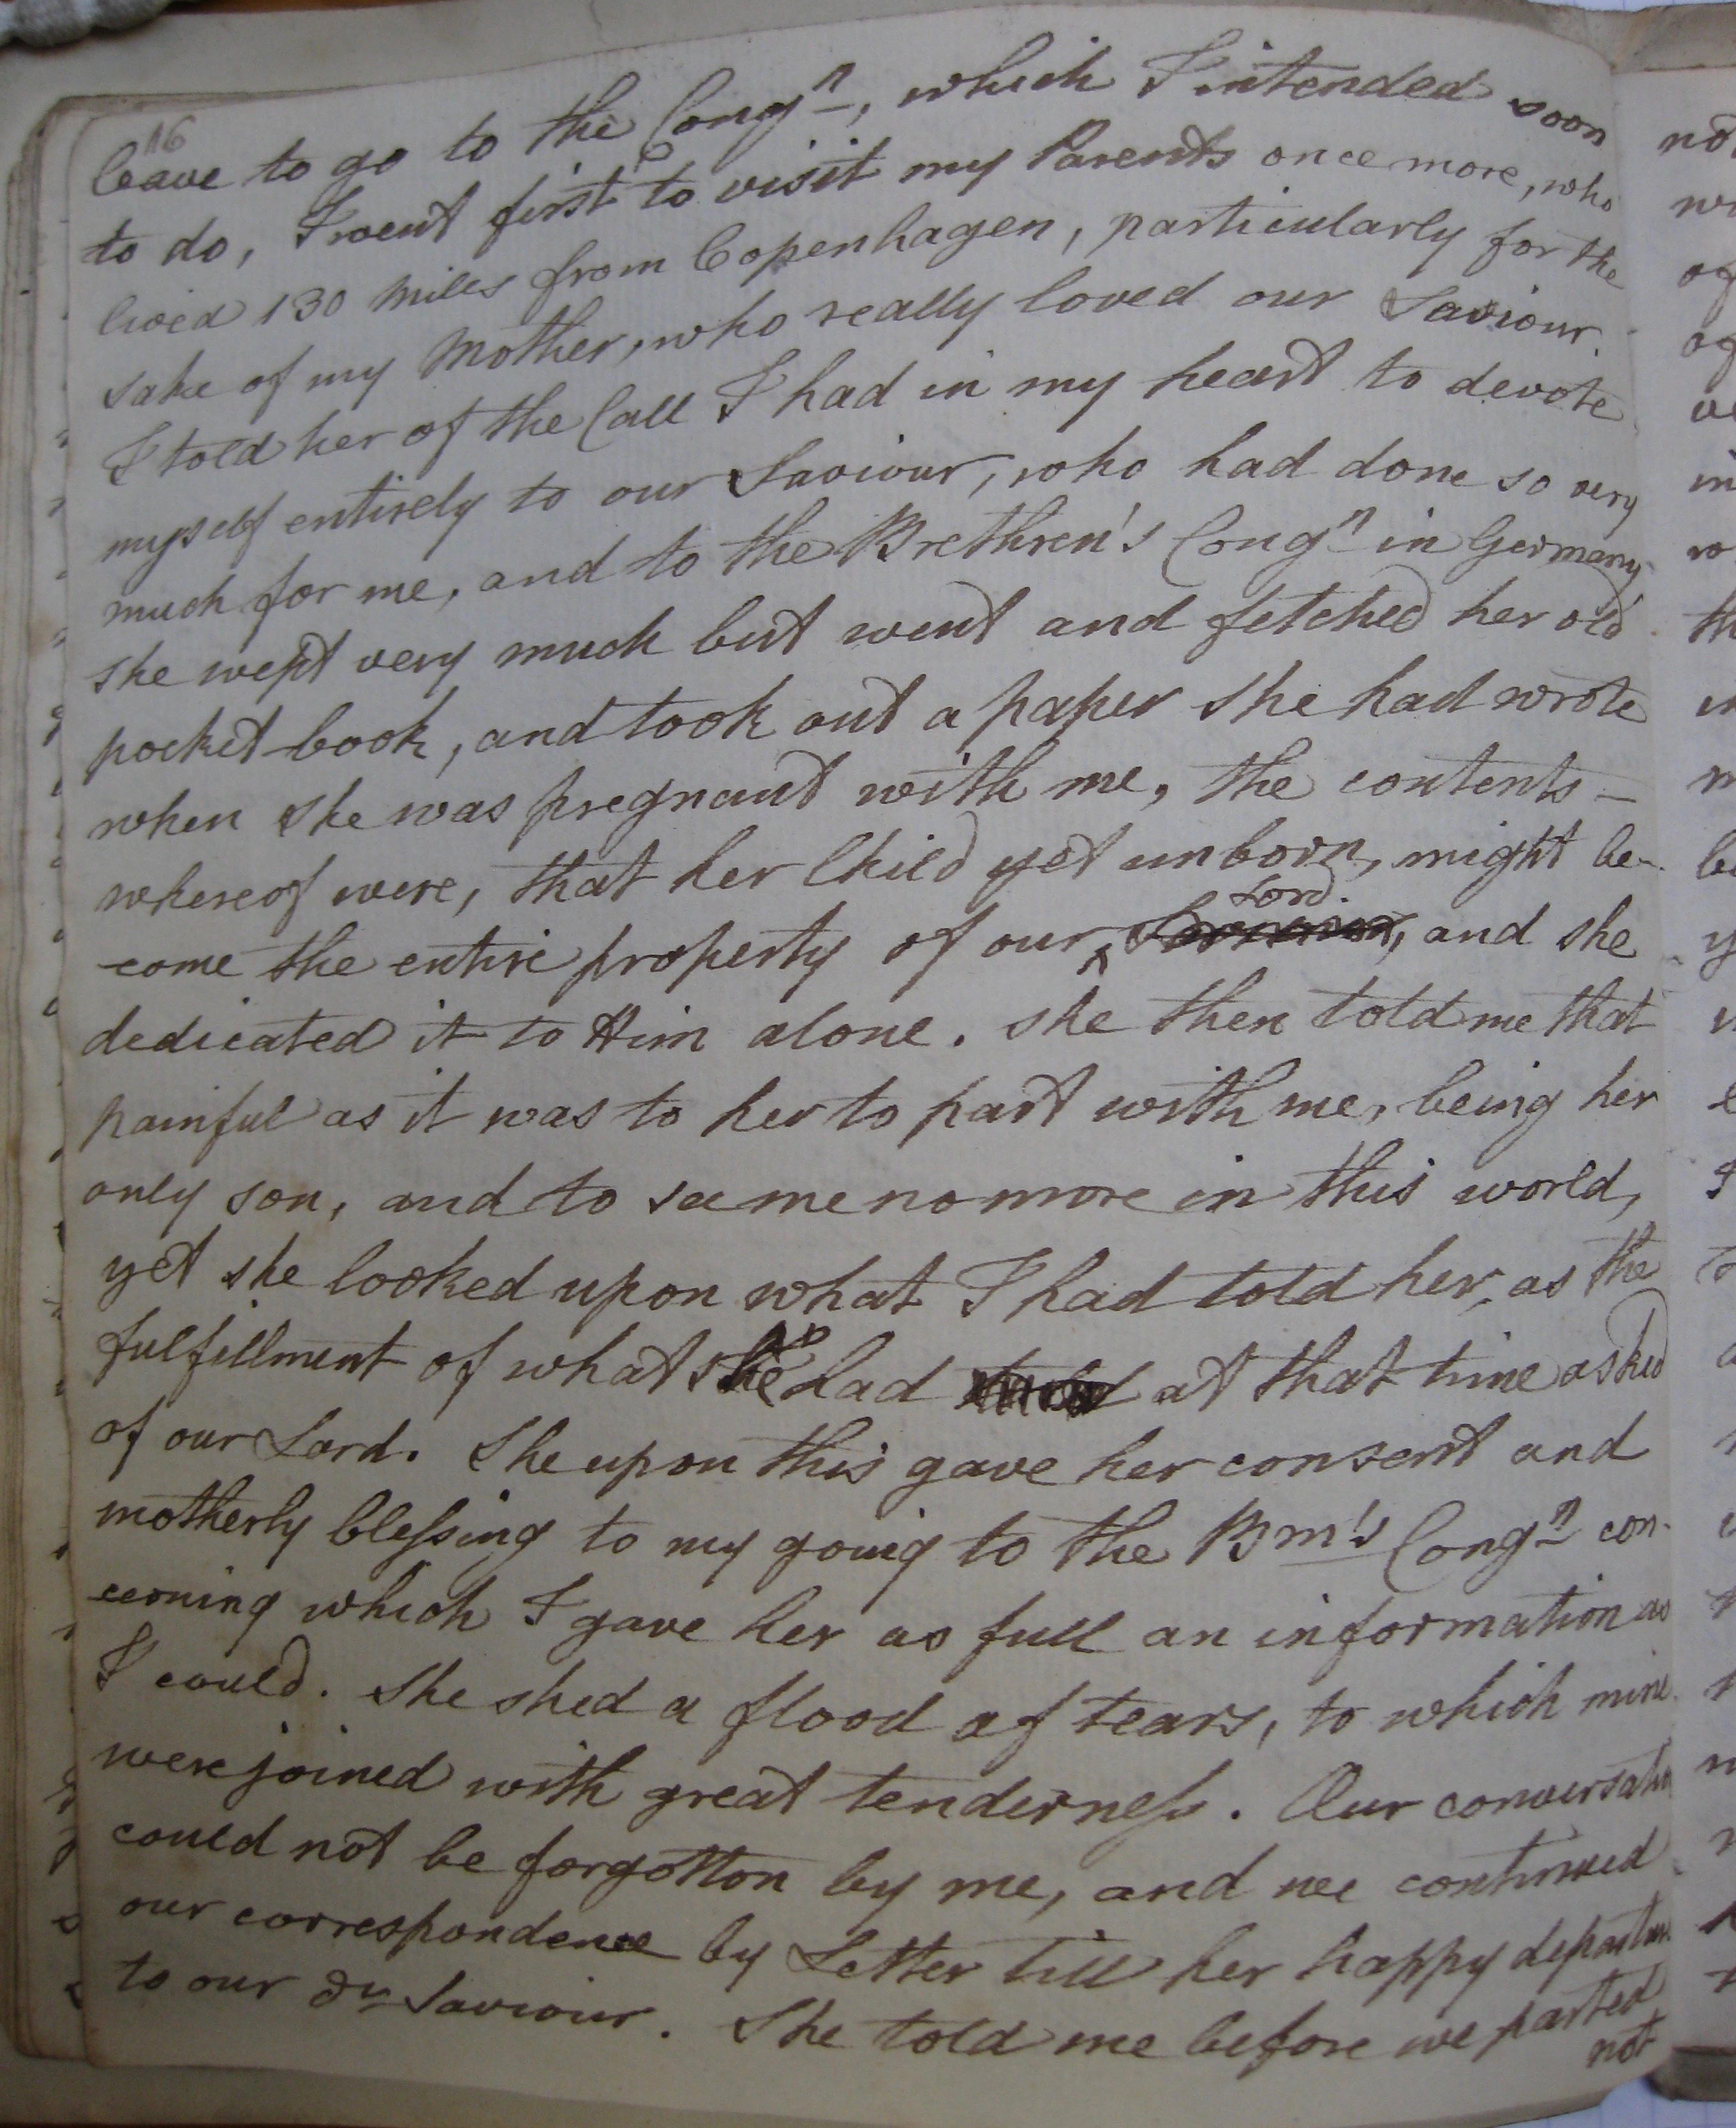 16
leave to go to the Congn, which I intended soon
to do, I went first to visit my Parents once more, who
lived 130 Miles from Copenhagen, particularly for the
sake of my Mother, who really loved our Saviour.
I told her of the Call I had in my heart to devote
myself entirely to our Saviour, who had done so very
much for me, and to the Brethren's Congn in Germany
she wept very much but went and fetched her old
pocket-book, and took out a paper she had wrote
when she was pregnant with me, the contents -
whereof were, that her Child yet unborn, might be-
Lord.
-come the entire property of our ^ and she
dedicated it to Him alone. She then told me that
painful as it was to her to part with me, being her
only son, and to see me no more in this world,
yet she looked upon what I had told her, as the
fulfillment of what she had at that time asked
of our Lord. She upon this gave her consent and
motherly blessing to my going to the Brn's Congn con-
-cerning which I gave her as full an information as
I could. She shed a flood of tears, to which mine
were joined with great tenderness. Our conversation
could not be forgotton by me, and we continued
our correspondence by Letter till her happy departure
to our dr Saviour. She told me before we parted
not